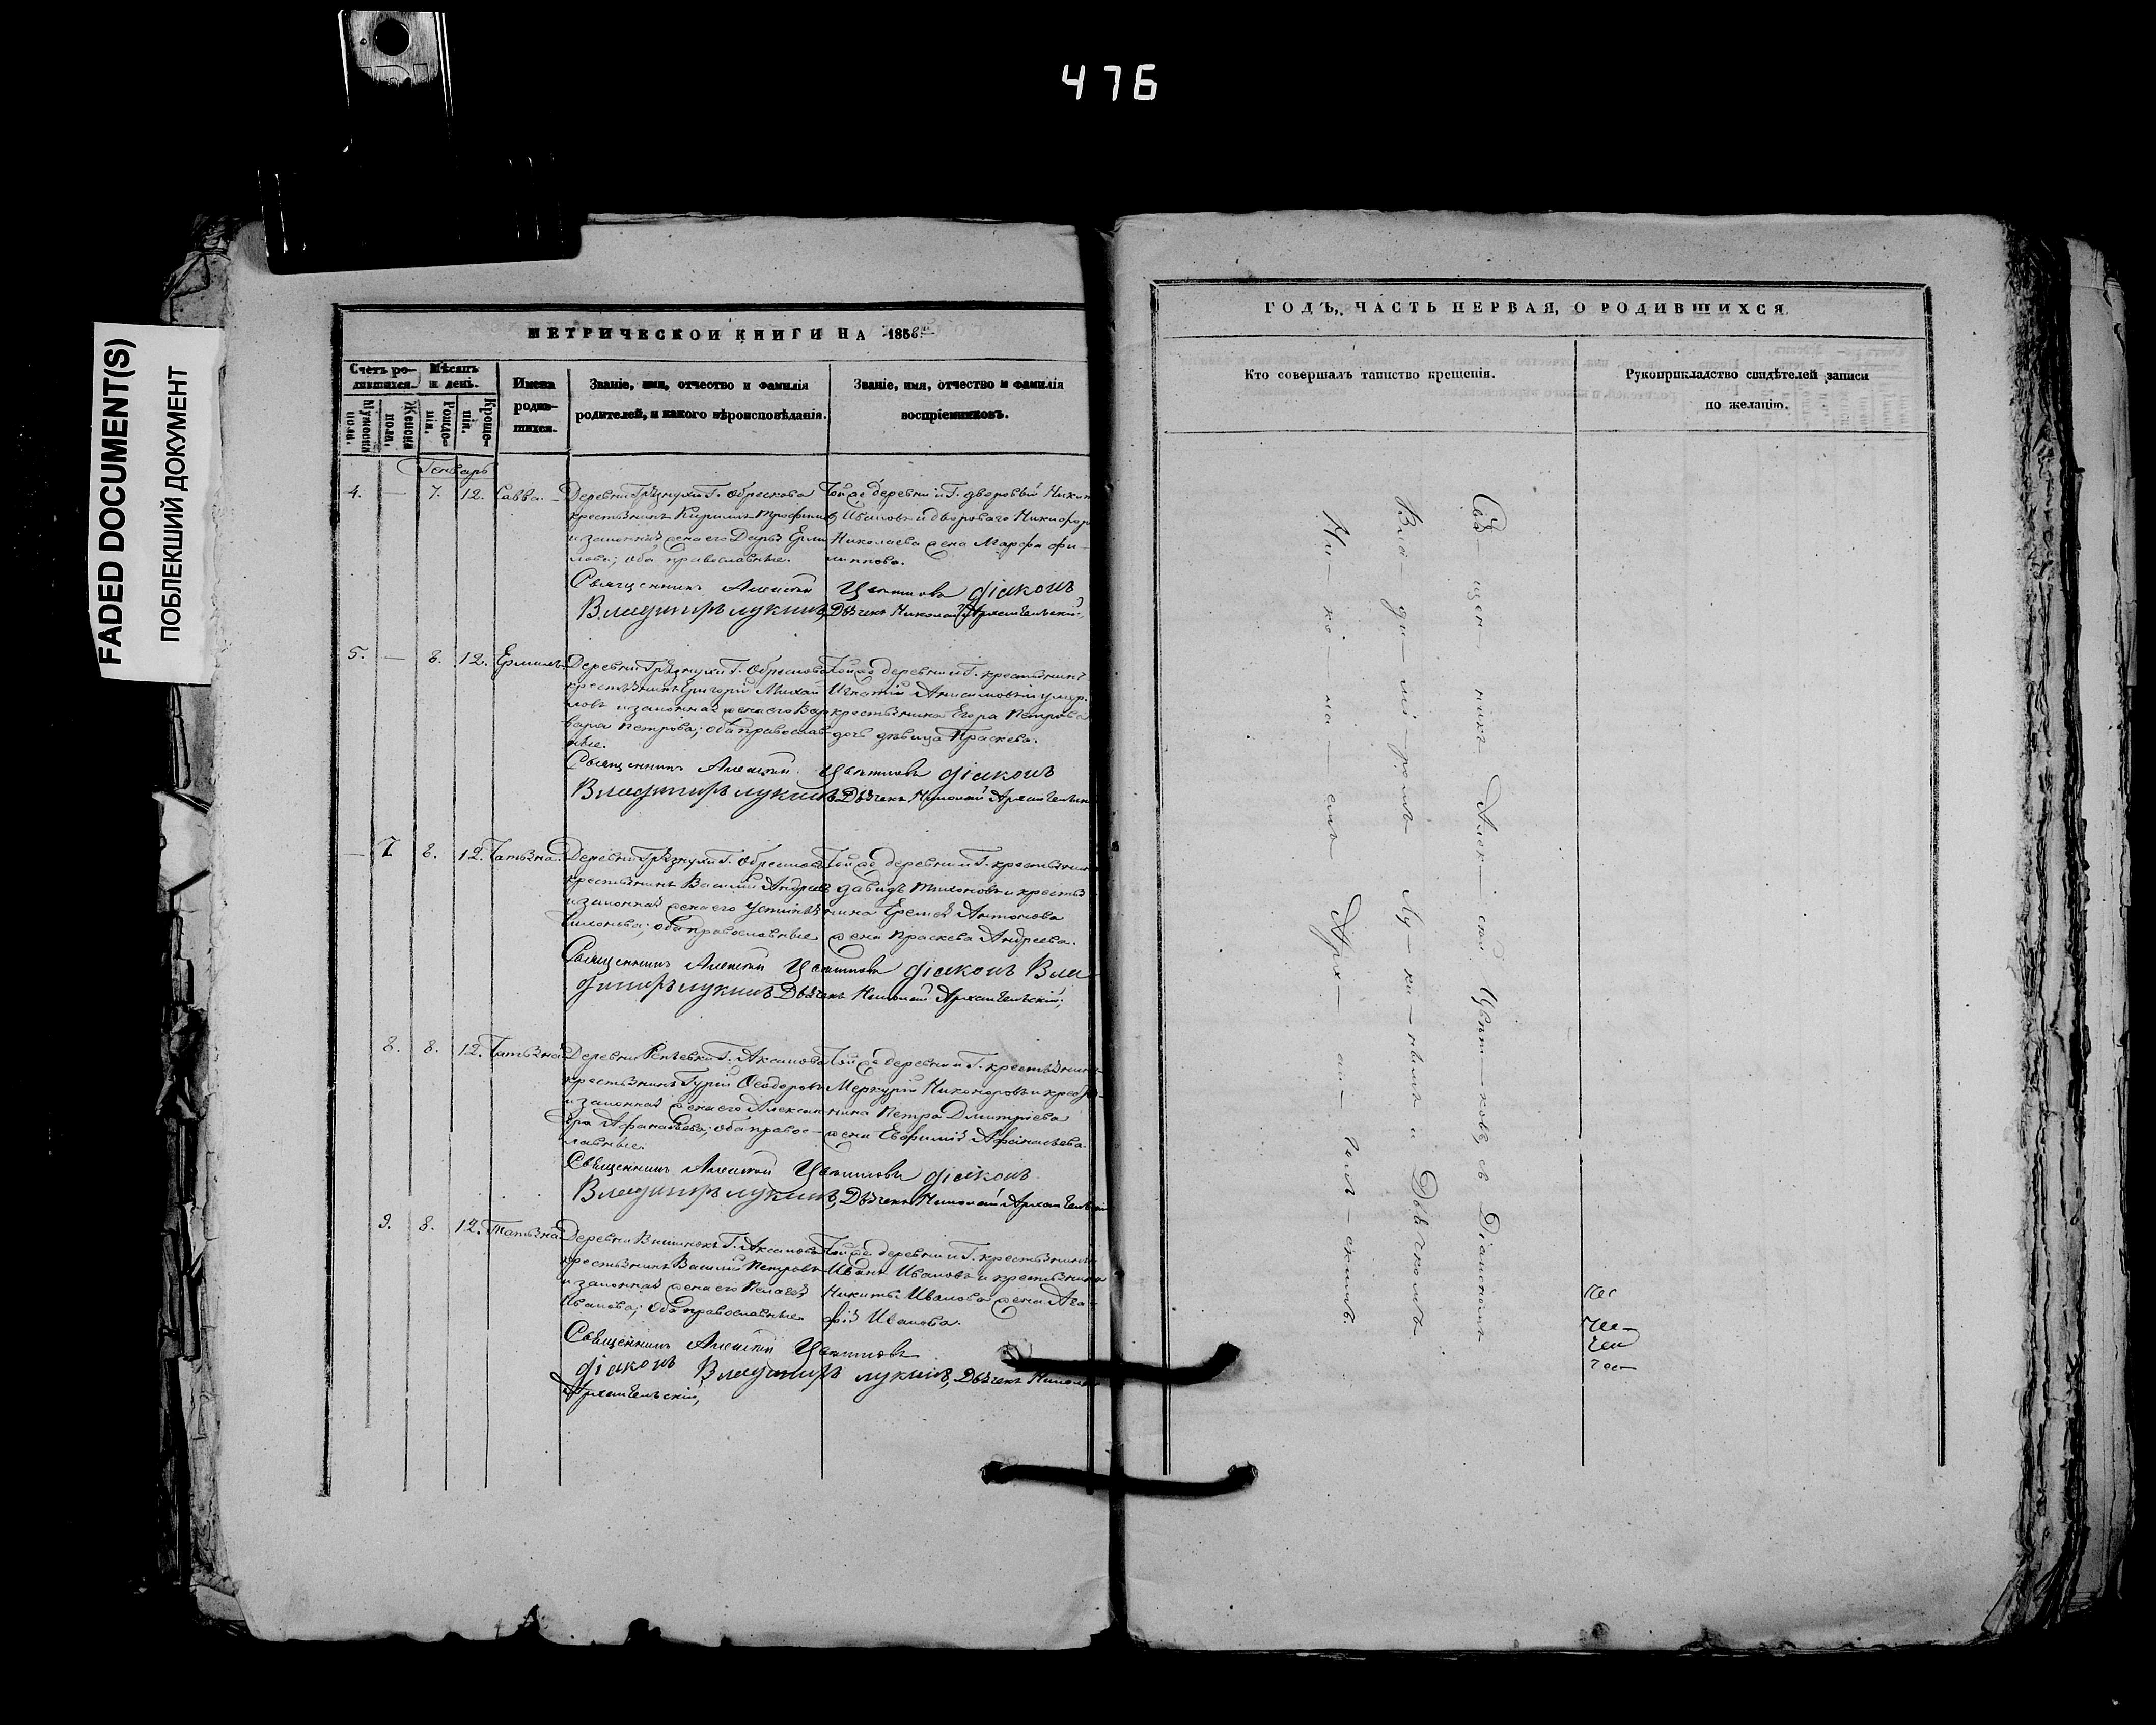 476
FADED DOCUMENT(S)
ПОБЛЕКШИЙ ДОКУМЕНТ
МЕТРИЧЕСКОЙ КНИГИ НА 1858й
Счетъ родившихся.
Мѣсяцъ и день.
Имена родившихся.
Званіе, имя, отчество и фамилія
родителей, и какого вѣроисповѣданія.
Званіе, имя, отчество и фамилія
воспріемниковъ.
Мужеска пола.
Женска пола.
Рожденія.
Крещеній.
Генварь
4. — 7. 12. Савва.
Деревни Грязнухи Г. Обрескова
крестьянинъ Кирилъ Трофимовъ
и законная жена его Дарья Ермилова; оба православные.
Той же деревни и Г. дворовый Никита
Ивановъ и двороваго Никифора
Николаева жена Марфа Филиппова.
Священникъ Алексѣй Цвѣтковъ діаконъ
Владимиръ Лукинъ, Дьячекъ Николай Архангельскій;
5. — 8. 12. Ермилъ.
Деревни Грязнухи Г. Обрескова
крестьянинъ Григорій Михайловъ и законная жена его Варвара Петрова; оба православные.
Той же деревни и Г. крестьянинъ
Игнатій Анисимовъ и умер.
крестьянина Егора Петрова
дочь дѣвица Праскева.
Священникъ Алексѣй Цвѣтковъ діаконъ
Владимиръ Лукинъ Дьячекъ Николай Архангельск
— 7. 8. 12. Татьяна.
Деревни Грязнухи Г. Обрескова
крестьянинъ Василій Андреевъ
и законная жена его Устинья
Тихонова; оба православные
Той же деревни и Г. крестьянинъ
Давидъ Тихоновъ и крестьянина Еремея Антонова
жена Праскева Андреева.
Священникъ Алексѣй Цвѣтковъ діаконъ Владимиръ Лукинъ Дьячекъ Николай Архангельскій;
8. 8. 12. Татьяна
Деревни Репьевки Г. Аксакова
крестьянинъ Гурій Ѳеодоровъ
и законная жена его Александра Афанасьева; оба православные.
Той же деревни и Г. крестьянинъ
Меркурій Никоноровъ и
Петра Дмитріева
жена Евфимія Афанасьева.
Священникъ Алексѣй Цвѣтковъ діаконъ
Владимиръ Лукинъ, Дьячекъ Николай Архангельскій
9. 8. 12. Татьяна
Деревни Вишенокъ Г. Аксакова
крестьянинъ Василій Петровъ
и законная жена его Пелагея
Иванова; оба православные.
Той же деревни и Г. крестьянинъ
Иванъ Ивановъ и крестьянина
Никиты Иванова жена Агафія Иванова.
Священникъ Алексѣй Цвѣтковъ
діаконъ Владимиръ Лукинъ, Дьячекъ Николай
Архангельскій;
ГОДЪ, ЧАСТЬ ПЕРВАЯ, О РОДИВШИХСЯ.
Кто совершалъ таинство крещенія.
Рукоприкладство свидѣтелей записи
по желанію.
Свя—щен—никъ Алек—сѣй Цвѣт—ковъ, съ Діакономъ
Вла—ди—мі—ромъ Лу—ки—нымъ и Дьячкомъ
Ни—ко—ла—емъ Арх—ан—гел—скимъ.